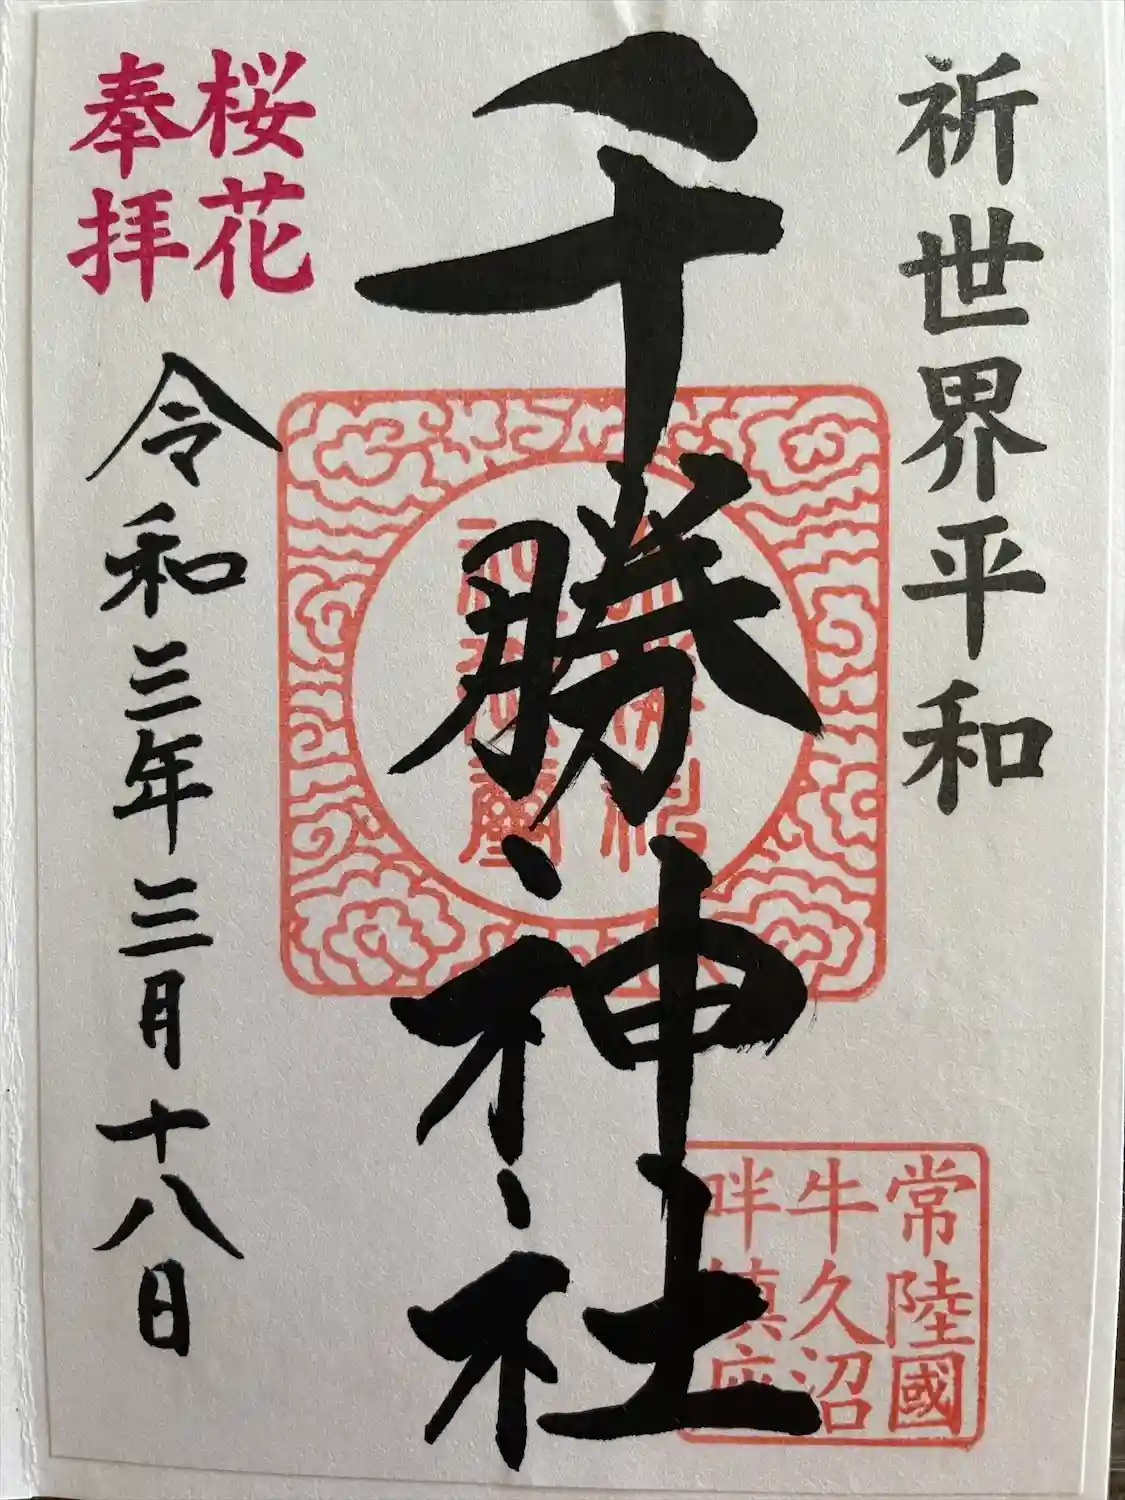 祈世界平和
千勝神社
桜花
奉拝
令和三年三月十八日
常陸國
牛久沼
畔鎮座